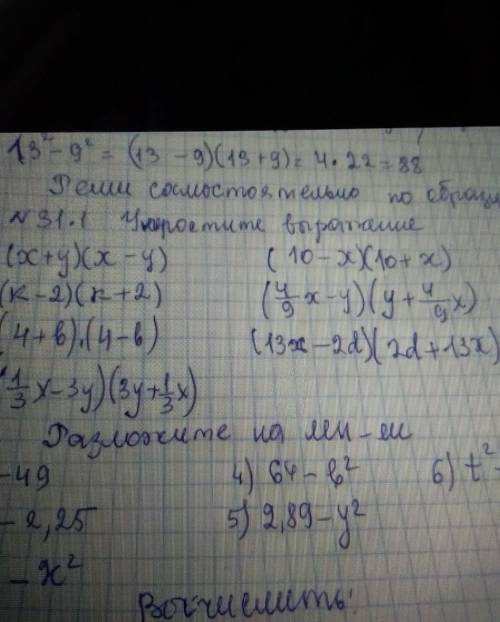 13² - 9² = (13 - 9)(13 + 9) = 4 · 22 = 88
Реши самостоятельно по образц
№ 31.1 Упростите выражение
(x+y)(x-y) (10-x)(10+x)
(к-2)(к+2) (4/9 x-y)(y+4/9 x)
(4+b)·(4-b) (13x-2d)(2d+13x)
(1/3 x-3y)(3y+1/3 x)
Разложите на мн-ли
-49 4) 64-b² 6) t²
-2,25 5) 2,89-y²
-x²
Вычислить: